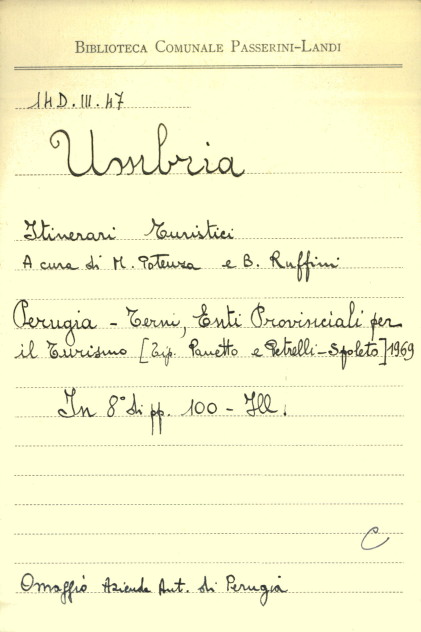 BIBLIOTECA COMUNALE PASSERINI-LANDI
14 D. III. 47
Umbria
Itinerari Turistici
A cura di M. Potenza e B. Ruffini
Perugia - Terni, Enti Provinciali per
il Turismo [Tip. Panetto e Petrelli - Spoleto] 1969
In 8° di pp. 100 - Ill.
C
Omaggio Azienda Aut. di Perugia